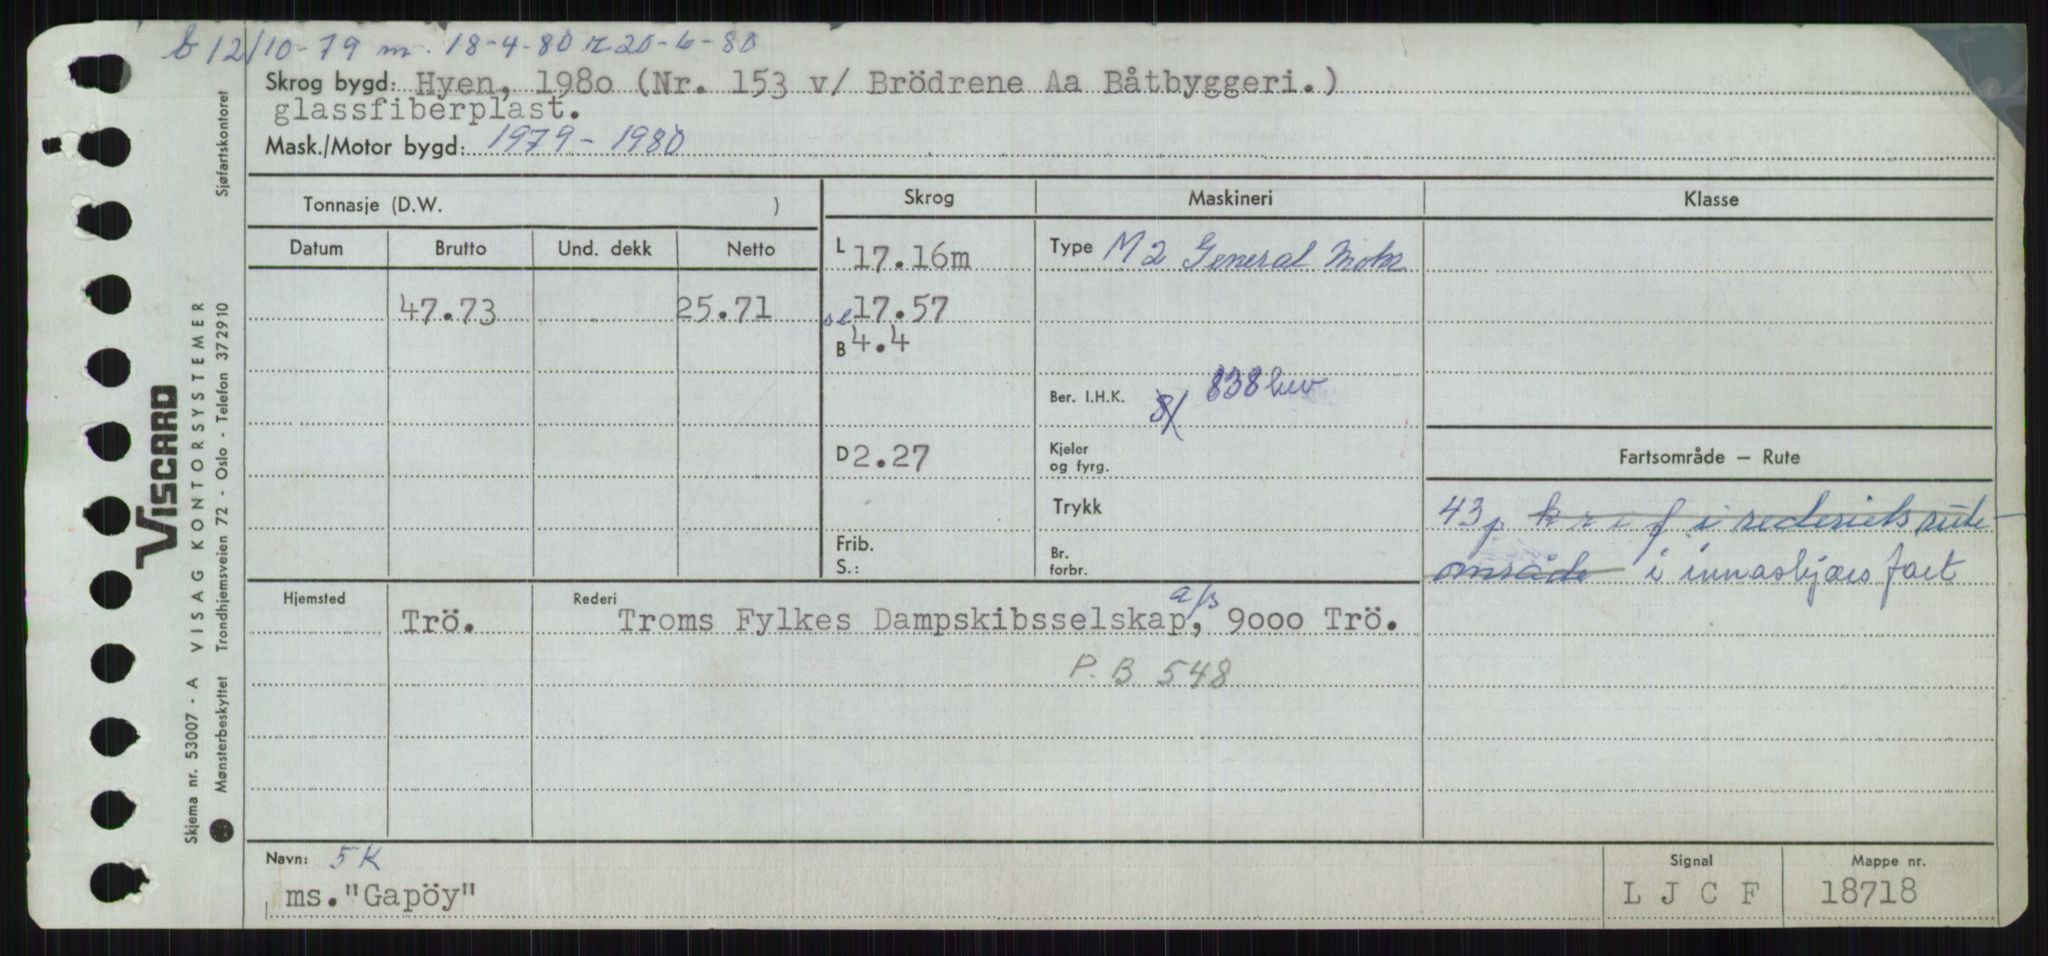 b 12/10-79 m. 18-4-80 r 20-6-80
Skrog bygd: Hyen, 198o (Nr. 153 v/ Brödrene Aa Båtbyggeri.)
glassfiberplast.
Mask./Motor bygd: 1979 - 1980
Tonnasje (D.W. )
Skrog
Maskineri
Klasse
Datum Brutto Und. dekk Netto
L 17.16m
Type M 2 General Motor
47.73 25.71
17.57
B 4.4
Ber. I.H.K. 838
D 2.27
Kjeler
og fyrg.
Fartsområde — Rute
Trykk
43 p k r e f i rederiets rute-
område i innaskjærs fart
Frib.
S.:
Br.
forbr.
Hjemsted Trö.
Rederi Troms Fylkes Dampskibsselskap a/s, 9ooo Trö.
P.B 548
Navn: 5 K
ms. "Gapöy"
Signal
L J C F
Mappe nr.
18718
VISCARD
Skjema nr. 53007 - A VISAG KONTORSYSTEMER
Mønsterbeskyttet Trondhjemsveien 72 - Oslo - Telefon 37 29 10
Sjøfartskontoret